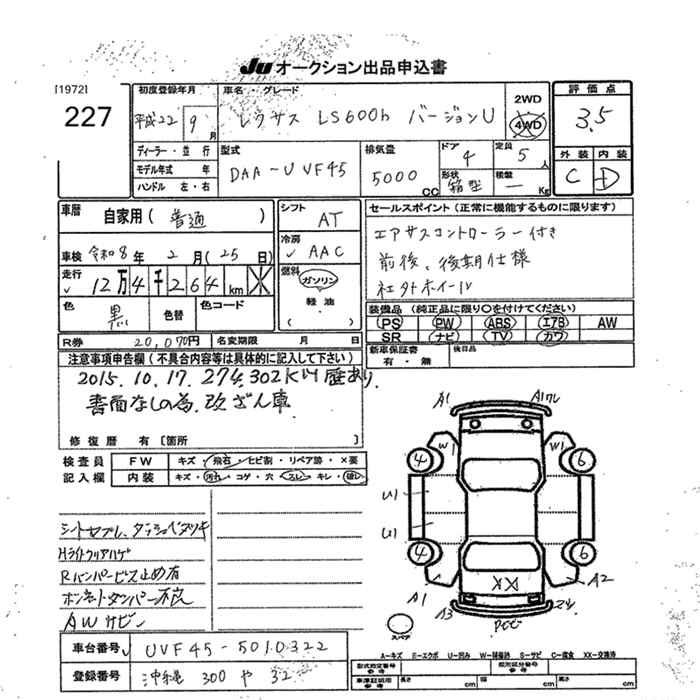 Ju オークション出品申込書
[1972]
227
初度登録年月
平成22 9月
車名・グレード
レクサス LS600h バージョンU
2WD
4WD
評価点
3.5
外装 内装
C D
ディーラー・並行
モデル年式 年
ハンドル 左・右
型式
DAA-UVF45
排気量
5000cc
ドア
4
定員
5人
形状
箱型
積載
- Kg
車歴 自家用(普通)
車検 令和8年2月(25日)
走行
✓ 12万4千264km
色
黒
色替
色コード
シフト
AT
冷房
✓ AAC
燃料
ガソリン
軽油
( )
セールスポイント(正常に機能するものに限ります)
エアサスコントローラー付き
前後、後期仕様
社外ホイール
装備品(純正品に限り○を付けてください)
PS PW ABS エアB AW
SR ナビ TV カワ
新車保証書
有・無
後日品
R券 20,070円
名変期限 月 日
注意事項申告欄(不具合内容等は具体的に記入して下さい)
2015.10.17. 274,302KM 歴あり
書面なしの為、改ざん車
修復歴 有[箇所 ]
検査員
記入欄
FW キズ・飛石・ヒビ割・リペア跡・×要
内装 キズ・汚れ・コゲ・穴・スレ・キレ・破レ
シートセプレ、ダッシュベタツキ
Hライトクリアハゲ
Rバンパービス止め有
ボンネットダンパー不良
AWサビ
A1
A1ワレ
W1
W1
4
6
U1
U1
4
6
XX
A1
A2
A3
スペア
A-キズ E-エクボ U-凹み W-補修跡 S-サビ C-腐食 XX-交換済
車台番号 ✓ UVF45-5010322
登録番号 沖縄 300 や 32
型式指定番号
参考
類別区分番号
参考
車庫証明用
参考
長さ cm
幅 cm
高さ cm